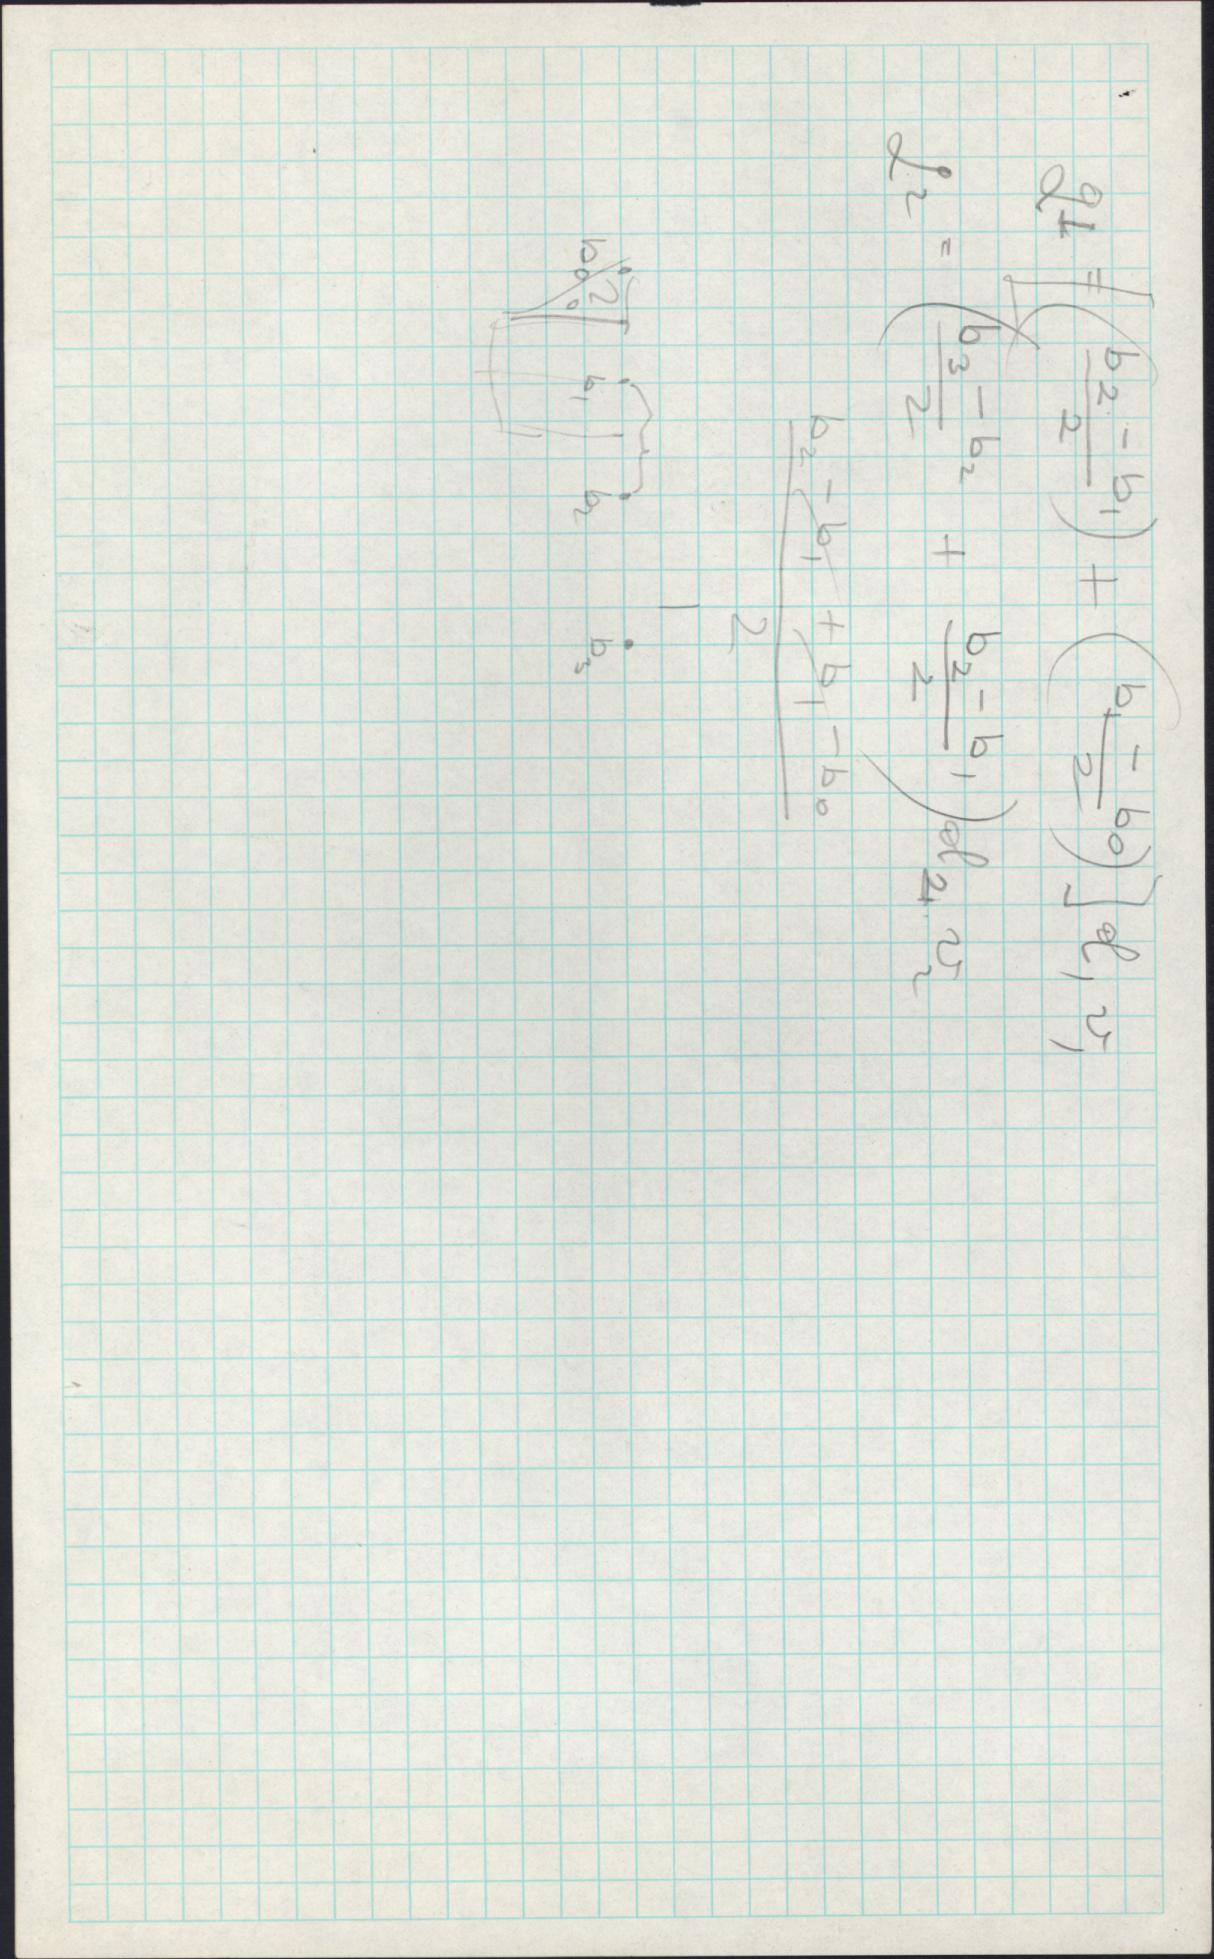 q₁ = [((b₂ - b₁)/2) + ((b₁ - b₀)/2)] d₁ v₁
q₂ = ((b₃ - b₂)/2 + (b₂ - b₁)/2) d₂ v₂
(b₂ - b₁ + b₁ - b₀)/2
1
2
b₀ b₁ b₂ b₃